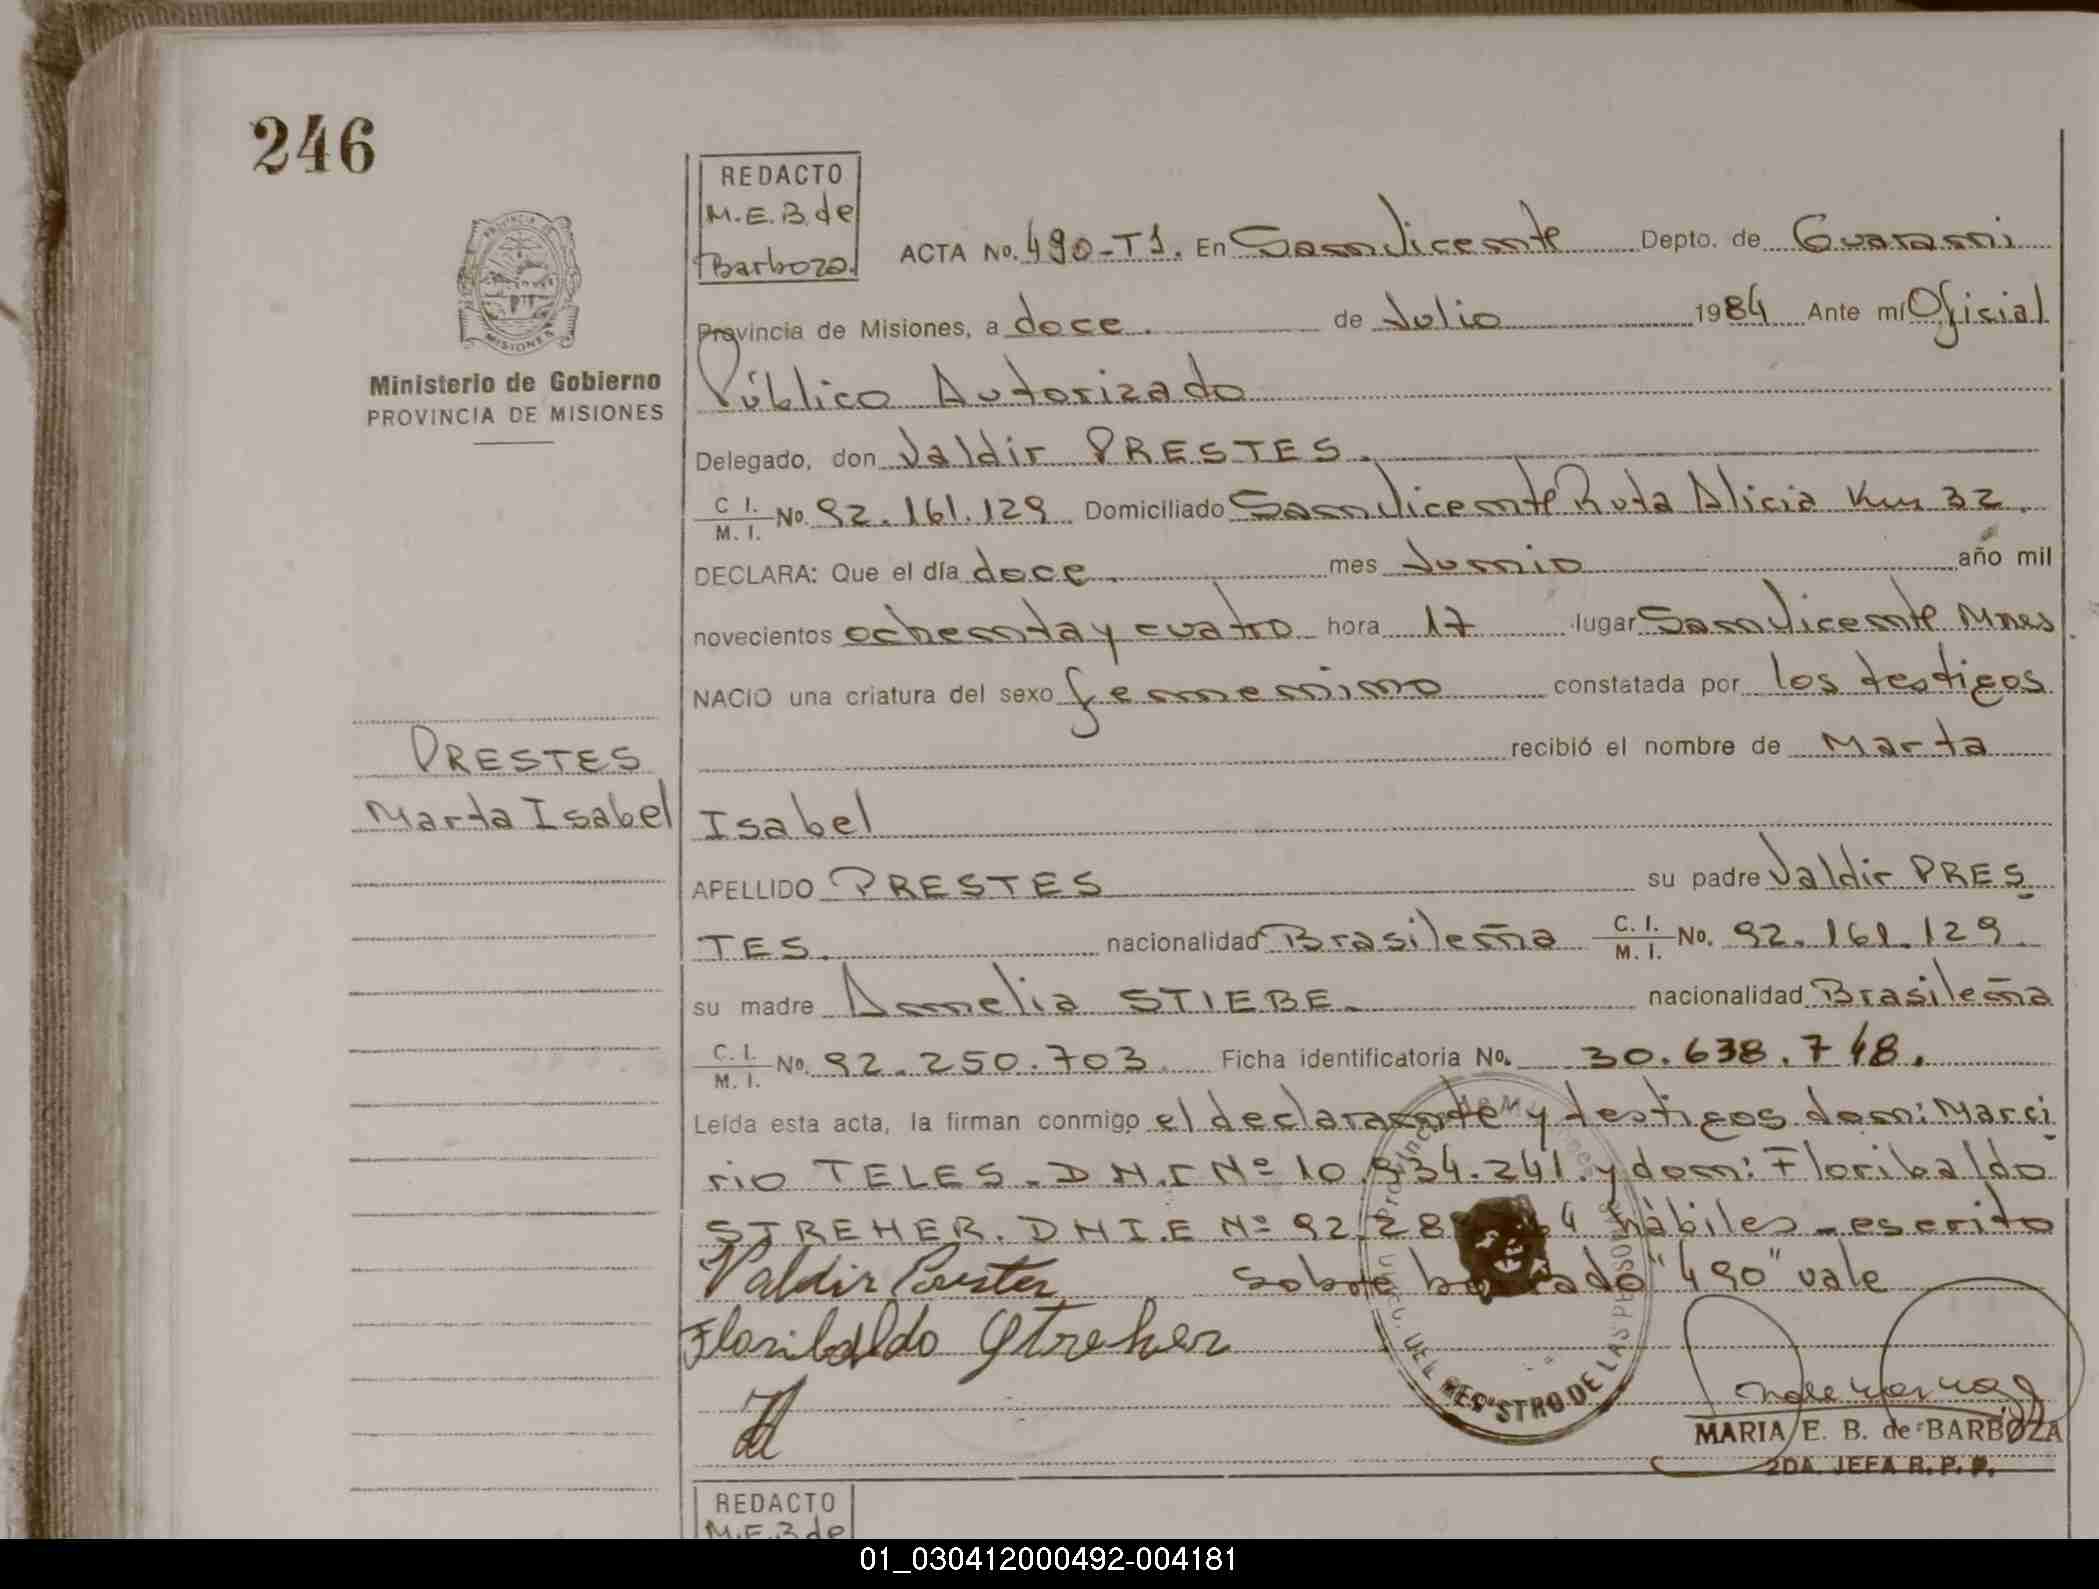 246
REDACTO
M.E.B. de
Barboza
ACTA No. 490-T1. En San Vicente Depto. de Guarani
Provincia de Misiones, a doce. de Julio 1984 Ante mí Oficial
Público Autorizado
Delegado, don Valdir PRESTES.
C. I. / M. I. No. 92.161.129 Domiciliado San Vicente Ruta Alicia Km 32.
DECLARA: Que el día doce. mes Junio año mil
novecientos ochenta y cuatro hora 17 lugar San Vicente Mnes
NACIO una criatura del sexo femenino constatada por los testigos
recibió el nombre de Marta
Isabel
APELLIDO PRESTES su padre Valdir PRES
TES. nacionalidad Brasileña C. I. / M. I. No. 92.161.129
su madre Amelia STIEBE. nacionalidad Brasileña
C. I. / M. I. No. 92.250.703 Ficha identificatoria No. 30.638.748.
Leída esta acta, la firman conmigo el declarante y testigos don: Marci
rio TELES. DNI Nº 10.934.241. y don: Floribaldo
STREHER. DNI.E Nº 92.28 4 hàbiles - escrito
sobre borrado "490" vale
Valdir Prestes
Floribaldo Streher
MARIA E. B. de BARBOZA
2DA. JEFA R. P. P.
PROVINCIA DE
MISIONES
Ministerio de Gobierno
PROVINCIA DE MISIONES
PRESTES
Marta Isabel
DEL REGISTRO DE LAS PERSONAS
REDACTO
M.E.B de
01_030412000492-004181